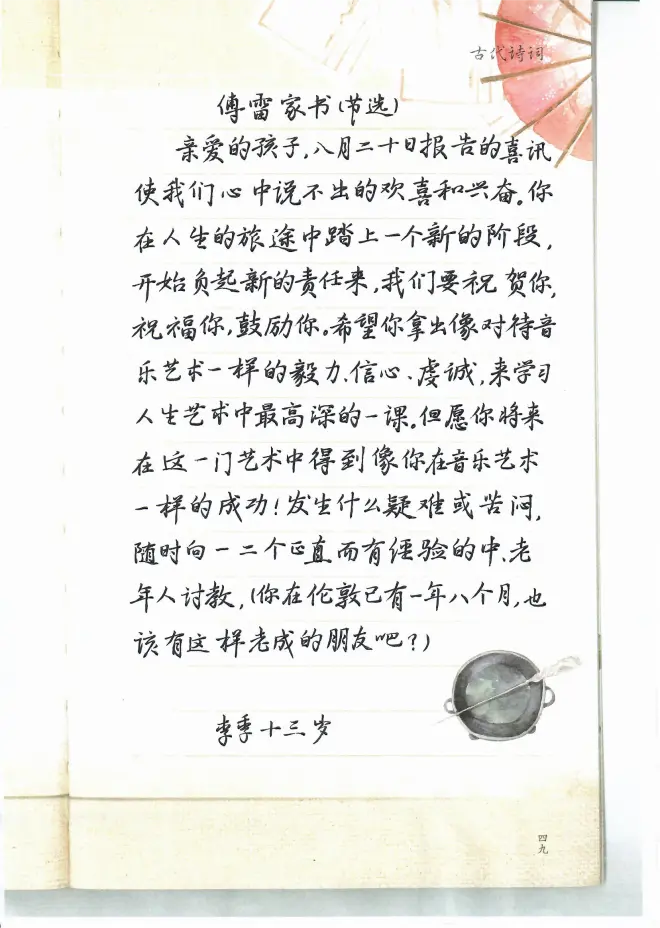 古代诗词
傅雷家书(节选)
亲爱的孩子,八月二十日报告的喜讯
使我们心中说不出的欢喜和兴奋。你
在人生的旅途中踏上一个新的阶段,
开始负起新的责任来,我们要祝贺你,
祝福你,鼓励你。希望你拿出像对待音
乐艺术一样的毅力、信心、虔诚,来学习
人生艺术中最高深的一课。但愿你将来
在这一门艺术中得到像你在音乐艺术
一样的成功!发生什么疑难或苦闷,
随时向一二个正直而有经验的中、老
年人讨教,(你在伦敦已有一年八个月,也
该有这样老成的朋友吧?)
李季十三岁
四九